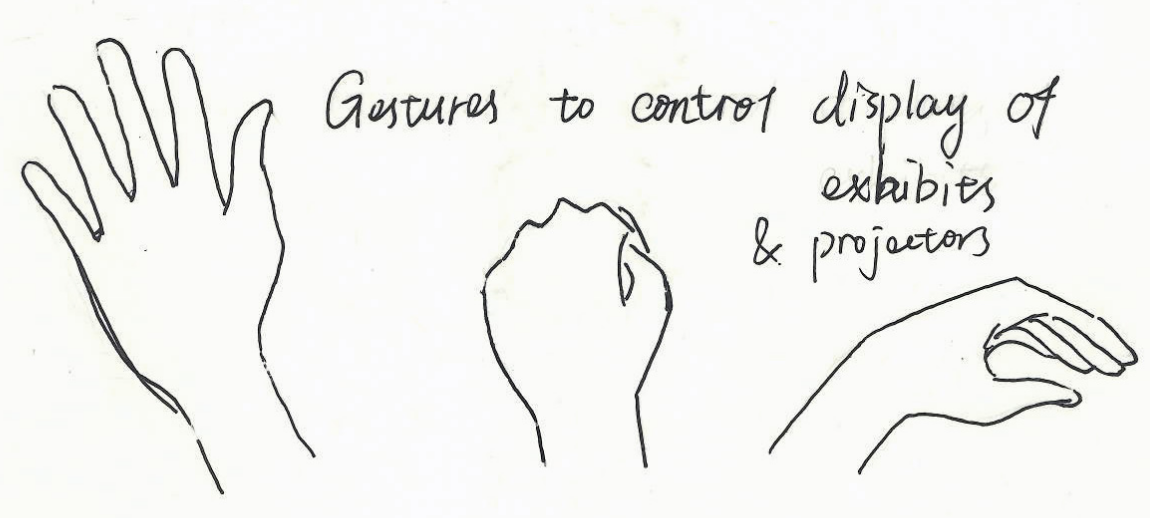 Gestures to control display of
exhibits
& projectors